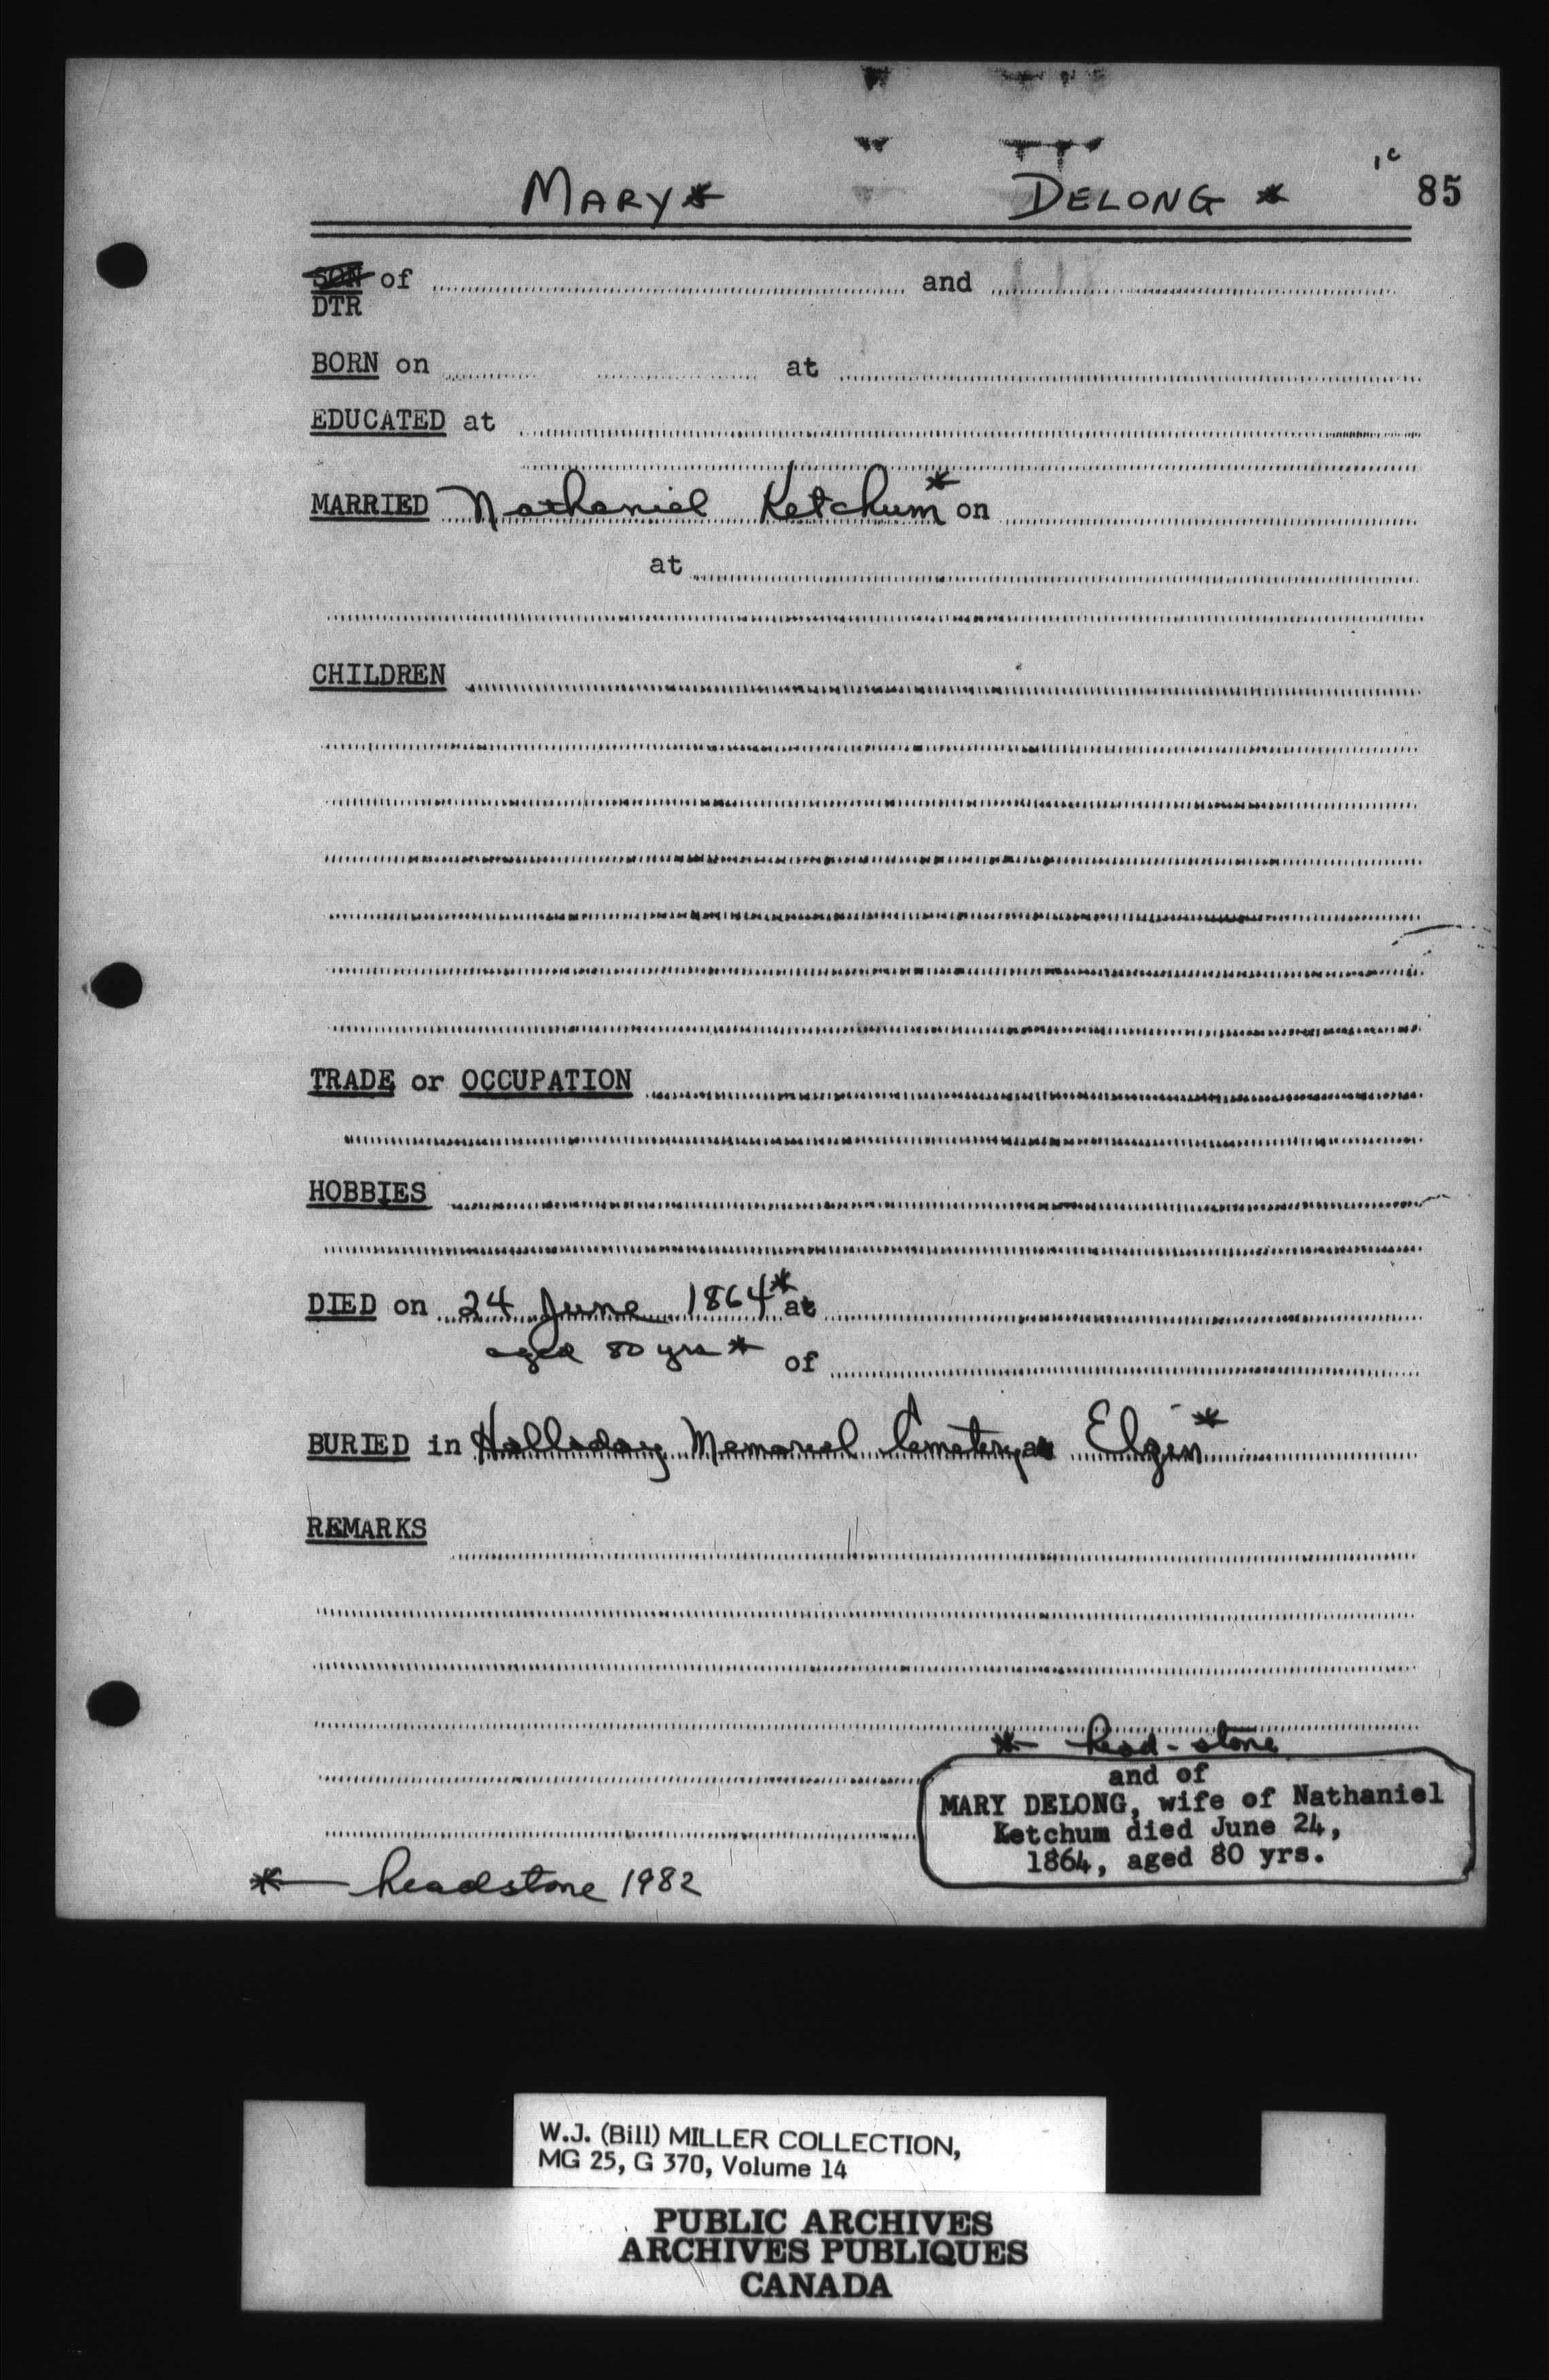 MARY* DELONG * 1c 85
SON of and
DTR
BORN on at
EDUCATED at
MARRIED Nathaniel Ketchum* on
at
CHILDREN
TRADE or OCCUPATION
HOBBIES
DIED on 24 June 1864* at
aged 80 yrs * of
BURIED in Halladay Memorial Cemetery at Elgin*
REMARKS
* head-stone
and of
MARY DELONG, wife of Nathaniel
Ketchum died June 24,
1864, aged 80 yrs.
* headstone 1982
W.J. (Bill) MILLER COLLECTION,
MG 25, G 370, Volume 14
PUBLIC ARCHIVES
ARCHIVES PUBLIQUES
CANADA